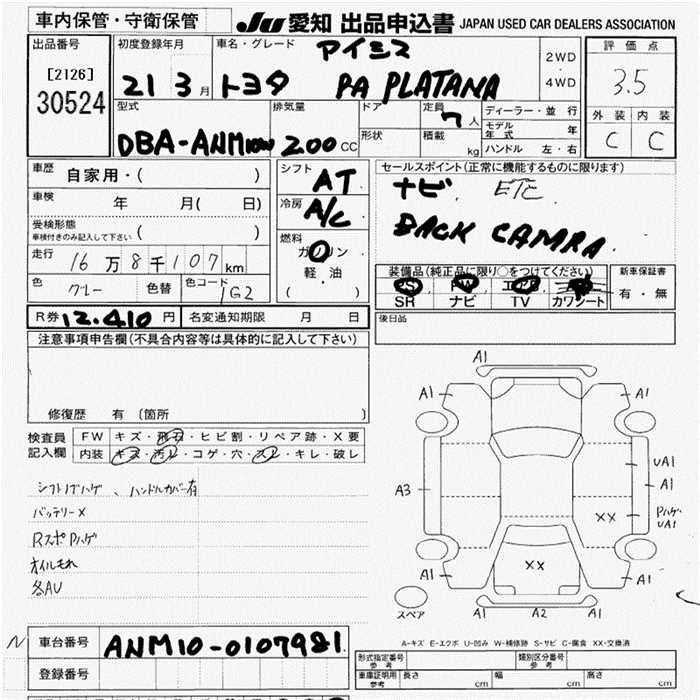 車内保管・守衛保管
JU 愛知 出品申込書 JAPAN USED CAR DEALERS ASSOCIATION
出品番号
[2126]
30524
初度登録年月
21 3 月
車名・グレード
アイシス
トヨタ PA PLATANA
2WD
・
4WD
評価点
3.5
外装 内装
C C
型式
DBA-ANM10W
排気量
200 cc
ドア
形状
定員
7 人
積載
kg
ディーラー・並行
モデル年式 年
ハンドル 左・右
車歴
自家用・( )
車検
年 月( 日)
受検形態
車検付きのみ記入して下さい ( )
走行
16 万 8 千 107 km
色 グレー 色替 色コード 1G2
シフト
AT
冷房
A/C
燃料
ガソリン
軽・油
( )
セールスポイント(正常に機能するものに限ります)
ナビ. ETC
BACK CAMRA.
装備品(純正品に限り○をつけてください)
PS PW エアB
SR ナビ TV カワシート
新車保証書
有・無
R券 12.410 円 名変通知期限 月 日
後日品
注意事項申告欄(不具合内容等は具体的に記入して下さい)
修復歴 有 〔箇所 〕
検査員
記入欄
FW キズ・飛石・ヒビ割・リペア跡・X要
内装 キズ・汚レ・コゲ・穴・スレ・キレ・破レ
シフトノブハゲ、ハンドルカバー有
バッテリーX
RスポPハゲ
オイルもれ
各AU
A1
A1 A1
UA1
A3 A1
XX Pハゲ
UA1
XX
A1 A1
スペア
A1 A2 A1
A-キズ E-エクボ U-凹み W-補修跡 S-サビ C-腐食 XX-交換済
N
車台番号 ANM10-0107981
登録番号
形式指定番号
参考
類別区分番号
参考
車庫証明用
参考
長さ cm 幅 cm 高さ cm